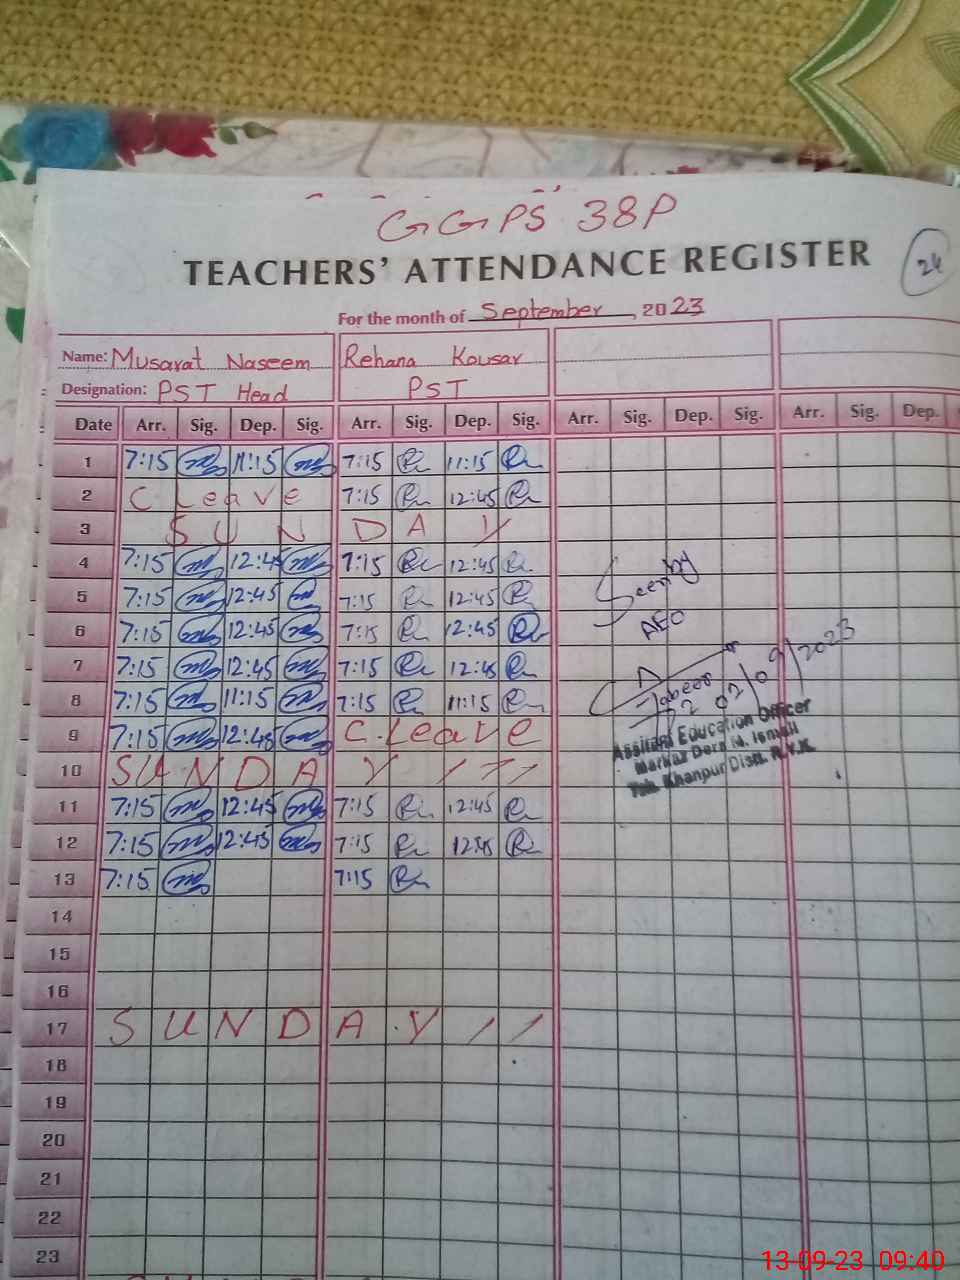 GGPS 38P
TEACHERS' ATTENDANCE REGISTER
24
For the month of September, 2023
Name: Musarat Naseem Rehana Kousar
Designation: PST Head PST
Date Arr. Sig. Dep. Sig. Arr. Sig. Dep. Sig. Arr. Sig. Dep. Sig. Arr. Sig. Dep.
1 7:15 11:15 7:15 11:15
2 C Leave 7:15 12:45
3 SUNDAY
4 7:15 12:45 7:15 12:45
5 7:15 12:45 7:15 12:45
6 7:15 12:45 7:15 12:45
7 7:15 12:45 7:15 12:45
8 7:15 11:15 7:15 11:15
9 7:15 12:45 C.Leave
10 SUNDAY
11 7:15 12:45 7:15 12:45
12 7:15 12:45 7:15 12:45
13 7:15 7:15
14
15
16
17 SUNDAY
18
19
20
21
22
23
Seen by
AEO
02/09/2023
Assistant Education Officer
Markaz
Teh. Khanpur Distt. R.Y.K.
13-09-23 09:40